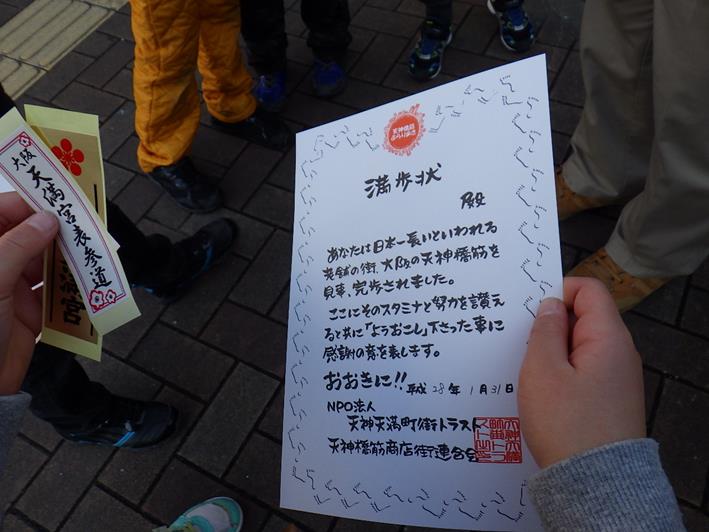 大阪
天満宮表参道
満宮
天神橋筋
満歩状
殿
あなたは日本一長いといわれる
老舗の街、大阪の天神橋筋を
見事、完歩されました。
ここにそのスタミナと努力を讃え
ると共に「ようおこし」下さった事に
感謝の意を表します。
おおきに!! 平成28年1月31日
NPO法人
天神天満町街トラスト
天神橋筋商店街連合会